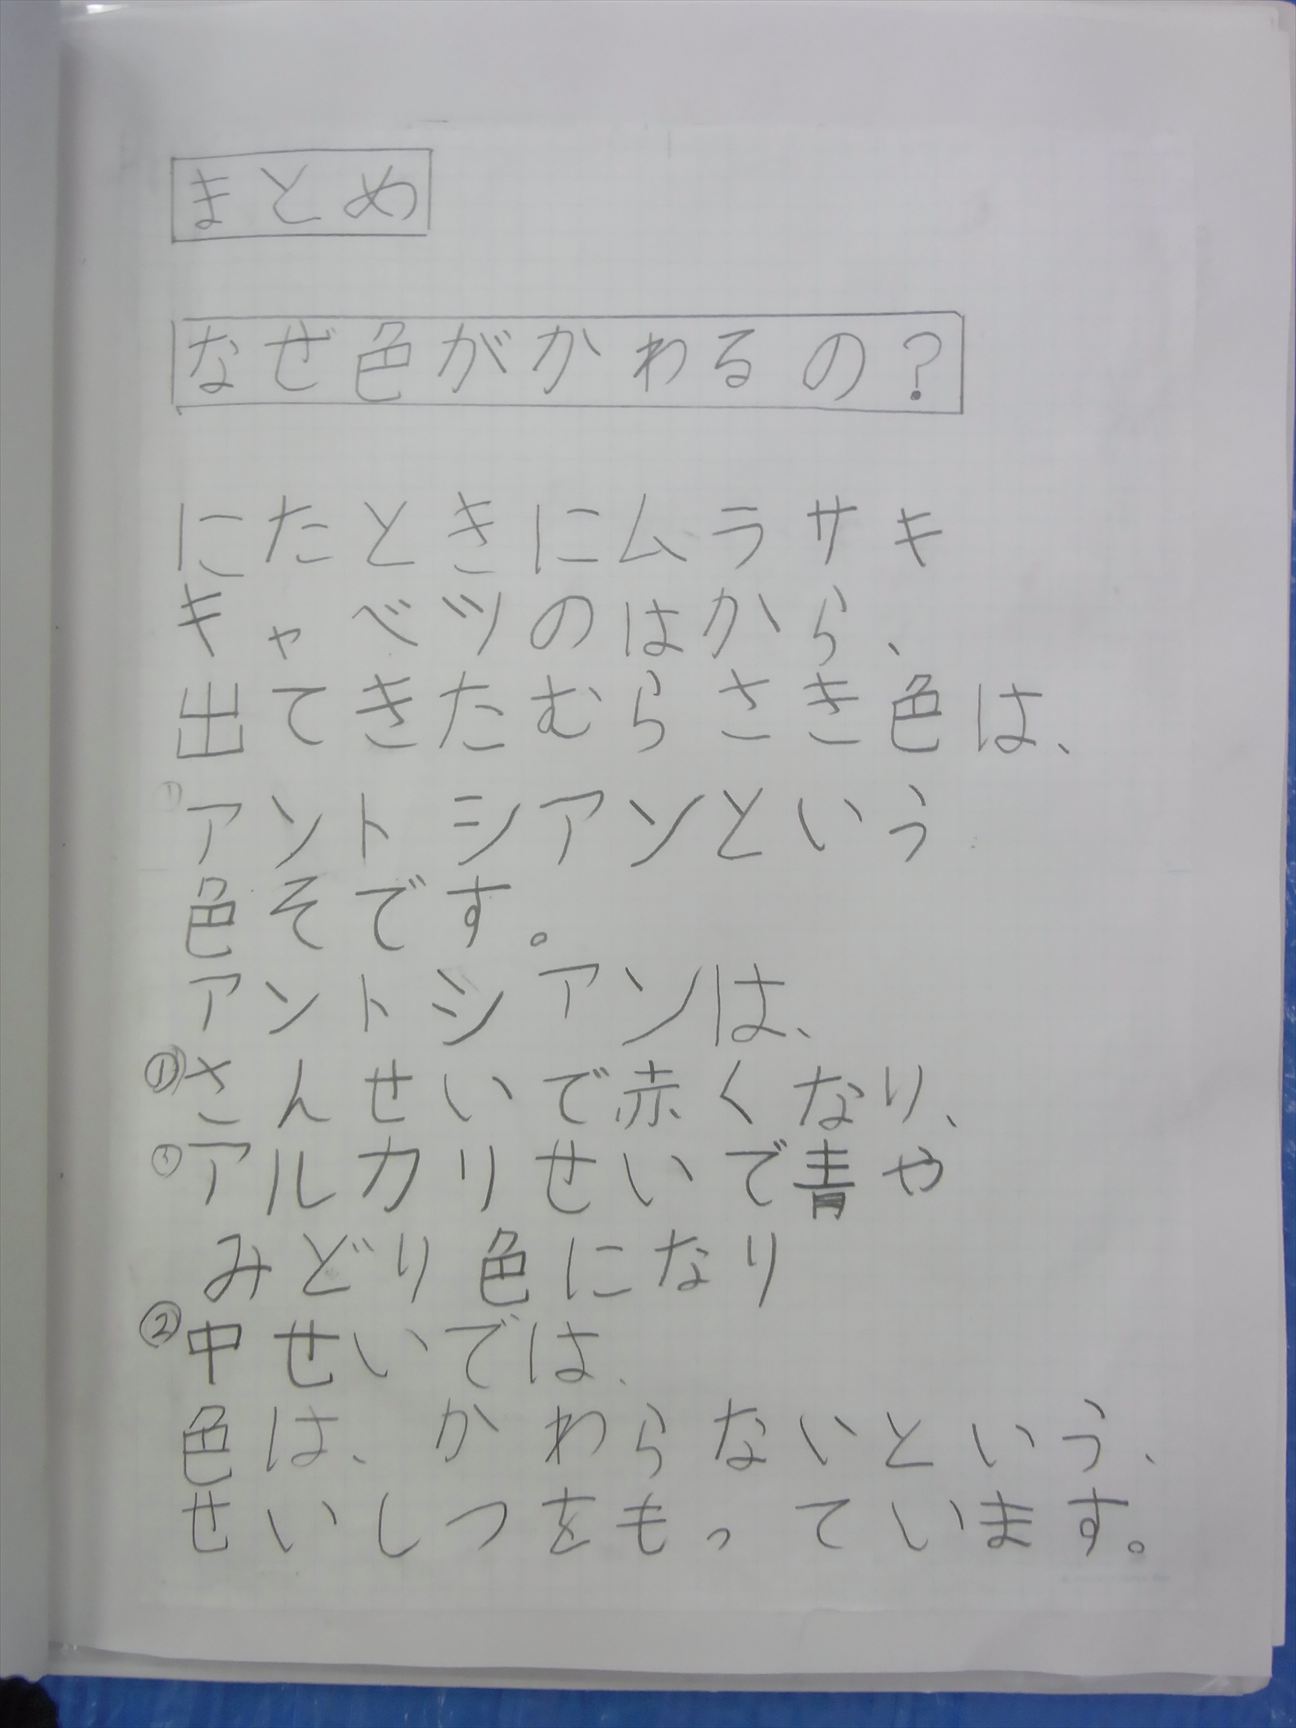 まとめ
なぜ色がかわるの?
にたときにムラサキ
キャベツのはから、
出てきたむらさき色は、
アントシアンという
色そです。
アントシアンは、
①さんせいで赤くなり、
アルカリせいで青や
みどり色になり
②中せいでは、
色は、かわらないという、
せいしつをもっています。